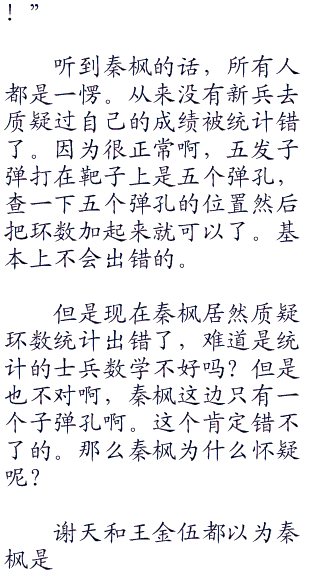 ！”
听到秦枫的话，所有人
都是一愣。从来没有新兵去
质疑过自己的成绩被统计错
了。因为很正常啊，五发子
弹打在靶子上是五个弹孔，
查一下五个弹孔的位置然后
把环数加起来就可以了。基
本上不会出错的。
但是现在秦枫居然质疑
环数统计出错了，难道是统
计的士兵数学不好吗？但是
也不对啊，秦枫这边只有一
个子弹孔啊。这个肯定错不
了的。那么秦枫为什么怀疑
呢？
谢天和王金伍都以为秦
枫是